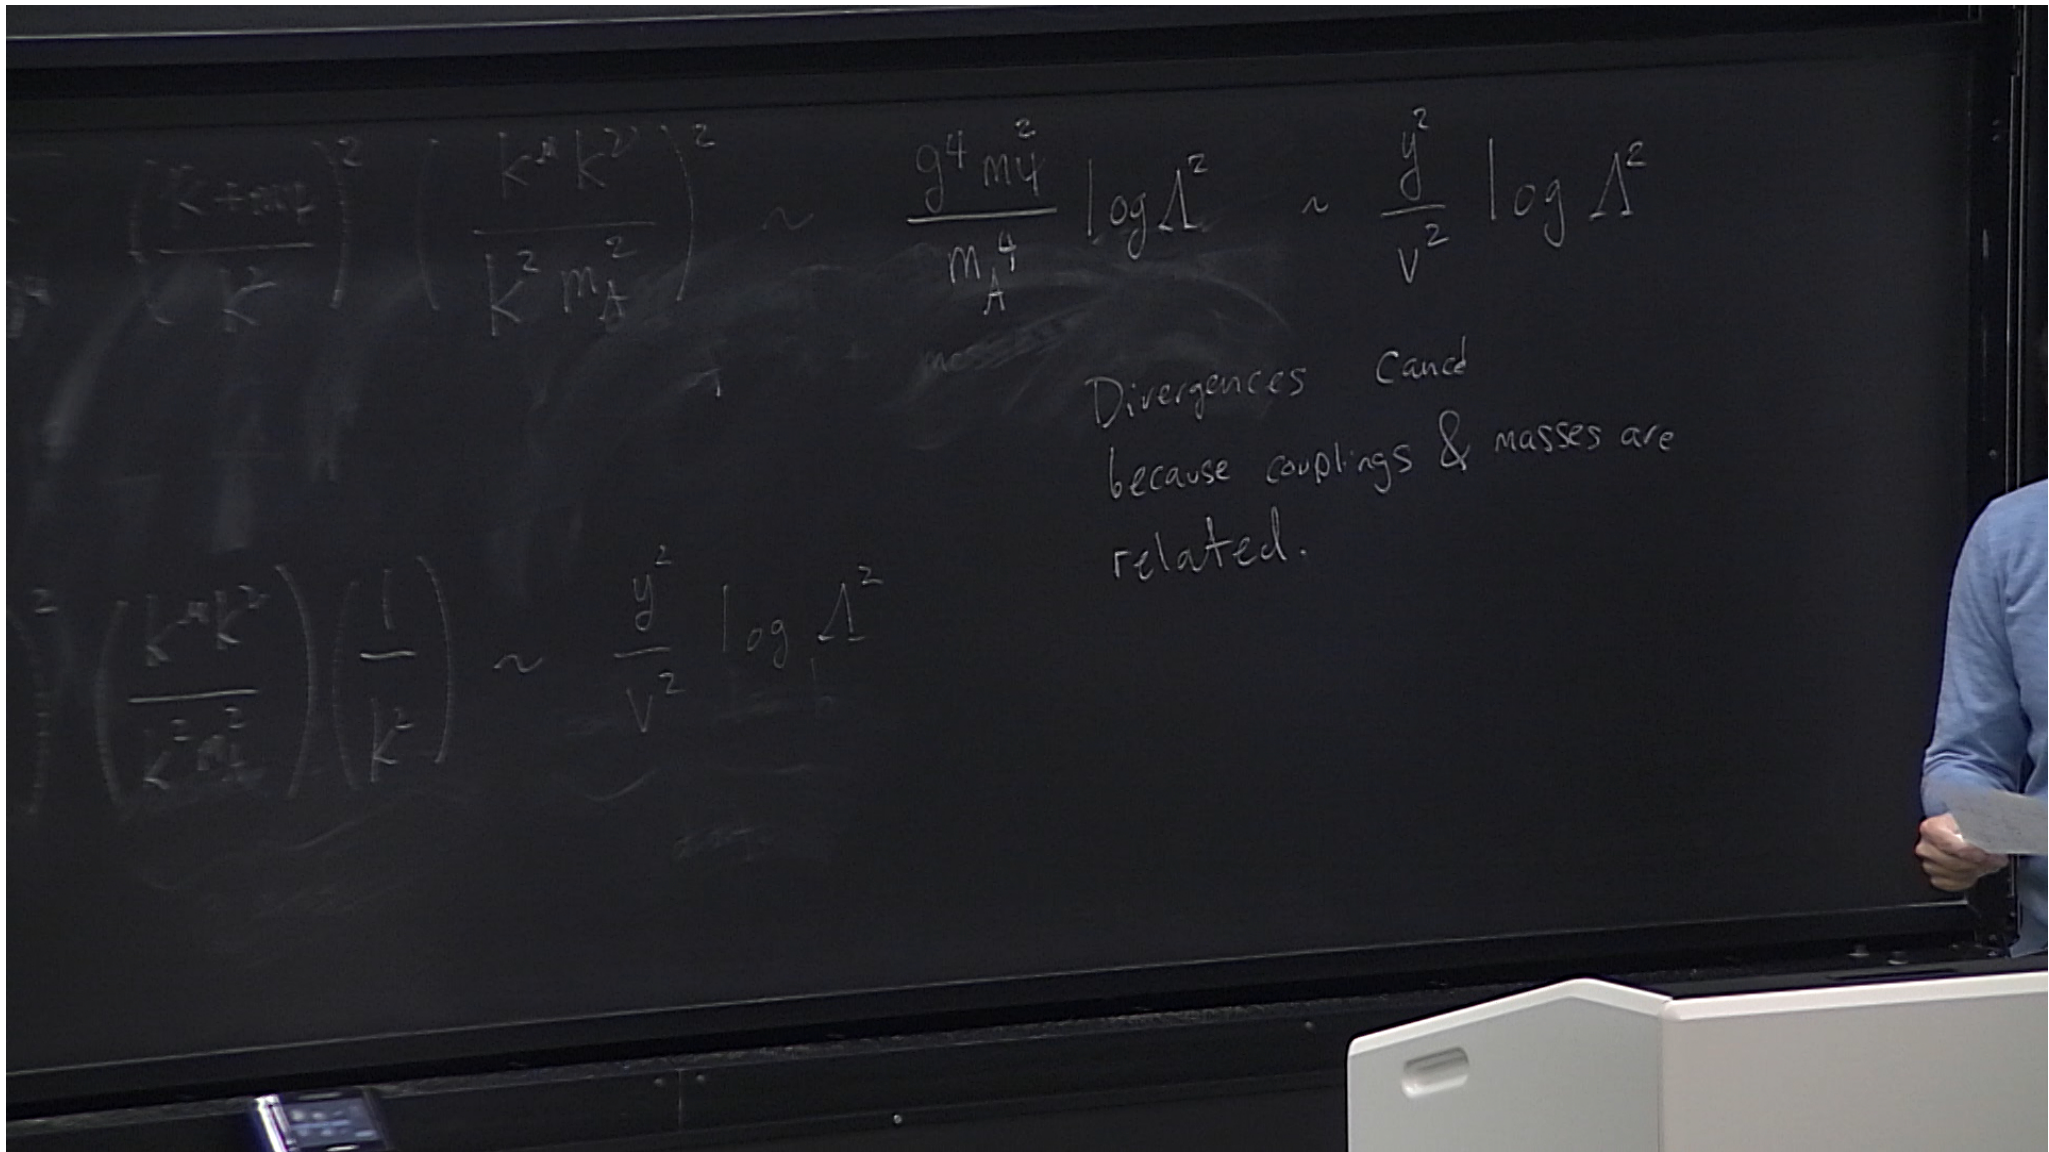 ( (k + m_ψ) / k² )² ( k^μ k^ν / (k² m_A²) )² ~ g⁴ m_ψ² / m_A⁴ log Λ² ~ y² / v² log Λ²
Divergences Cancel
because couplings & masses are
related.
)² ( k^μ k^ν / (k² m_A²) ) ( 1 / k² ) ~ y² / v² log Λ²